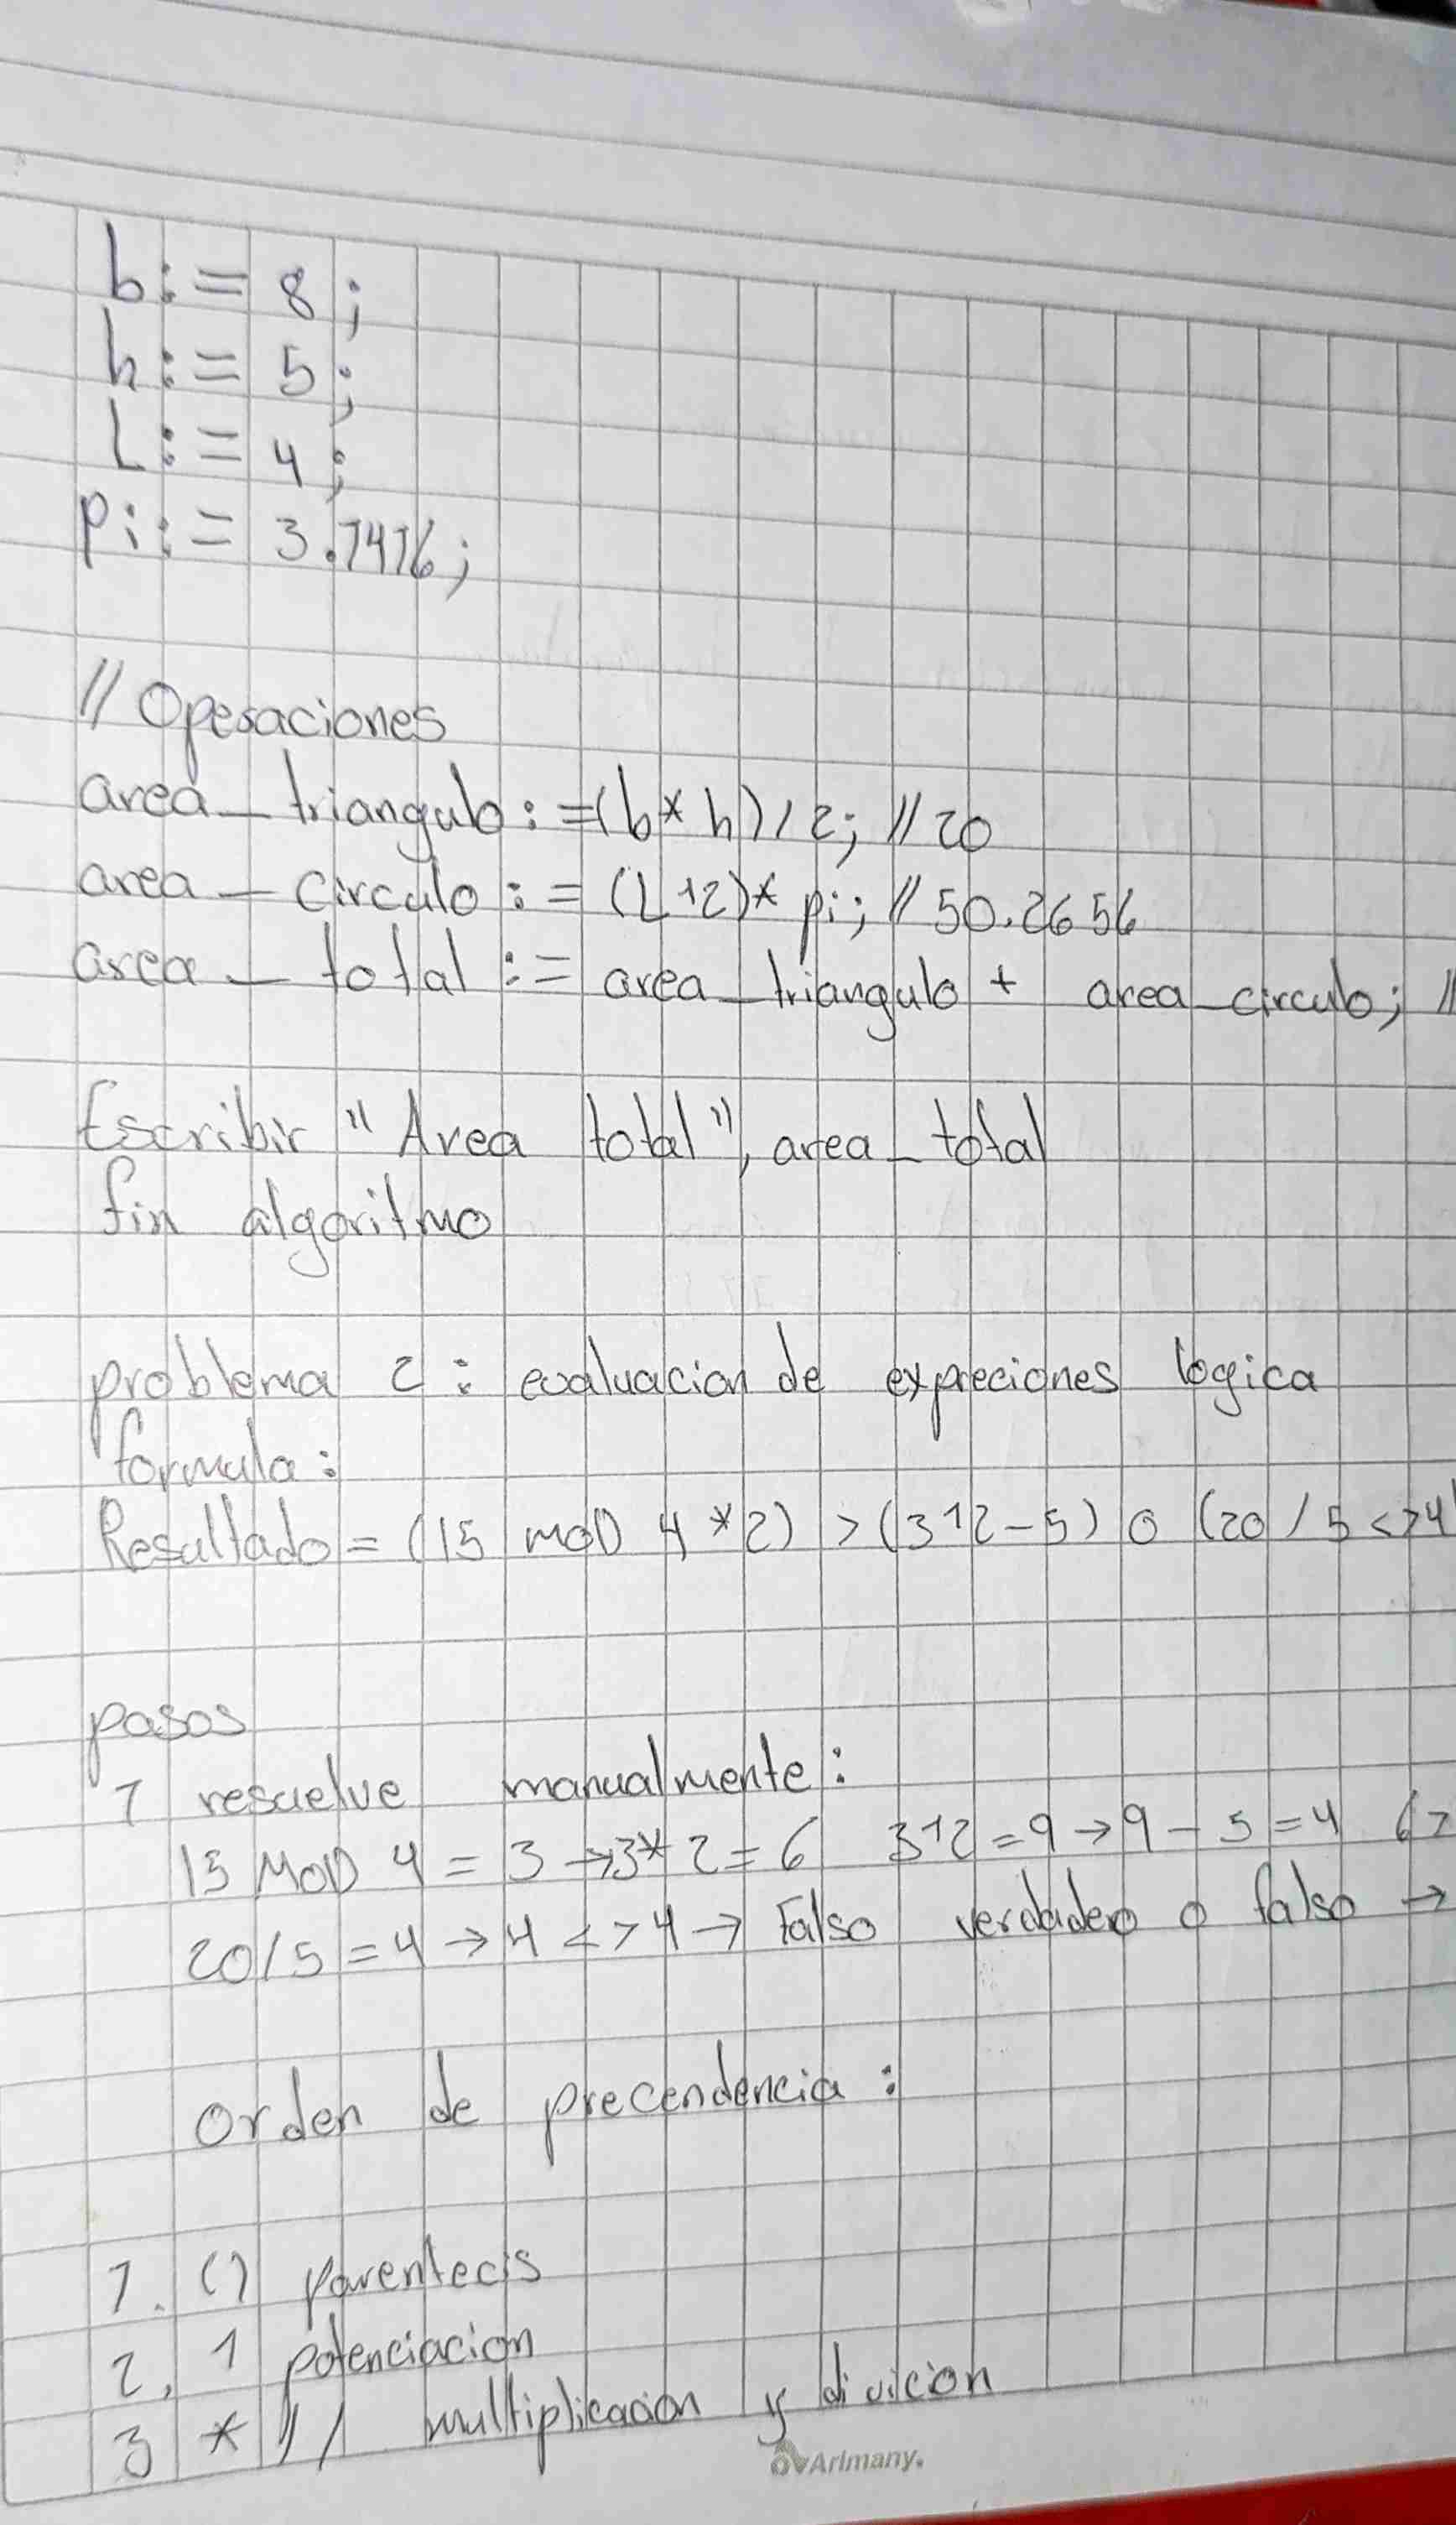 b:= 8;
h:= 5;
L:= 4;
pi:= 3.1416;
// Operaciones
area_triangulo:=(b*h)/2; //20
area_circulo:= (L^2)* pi; // 50.2656
area_total := area_triangulo + area_circulo; //
Escribir "Area total", area_total
fin algoritmo
problema 2: evaluacion de expreciones logica
formula:
Resultado = (15 MOD 4 *2) > (3^2-5) o (20 / 5 <> 4)
pasos
1 resuelve manualmente:
15 MOD 4 = 3 →3* 2 = 6 3^2 = 9 → 9 - 5 = 4 6>
20/5 = 4 → 4 <> 4 → Falso verdadero o falso →
Orden de precendencia:
1. () parentecis
2. ^ potenciacion
3 * // / multiplicacion y divicion
Arimany.